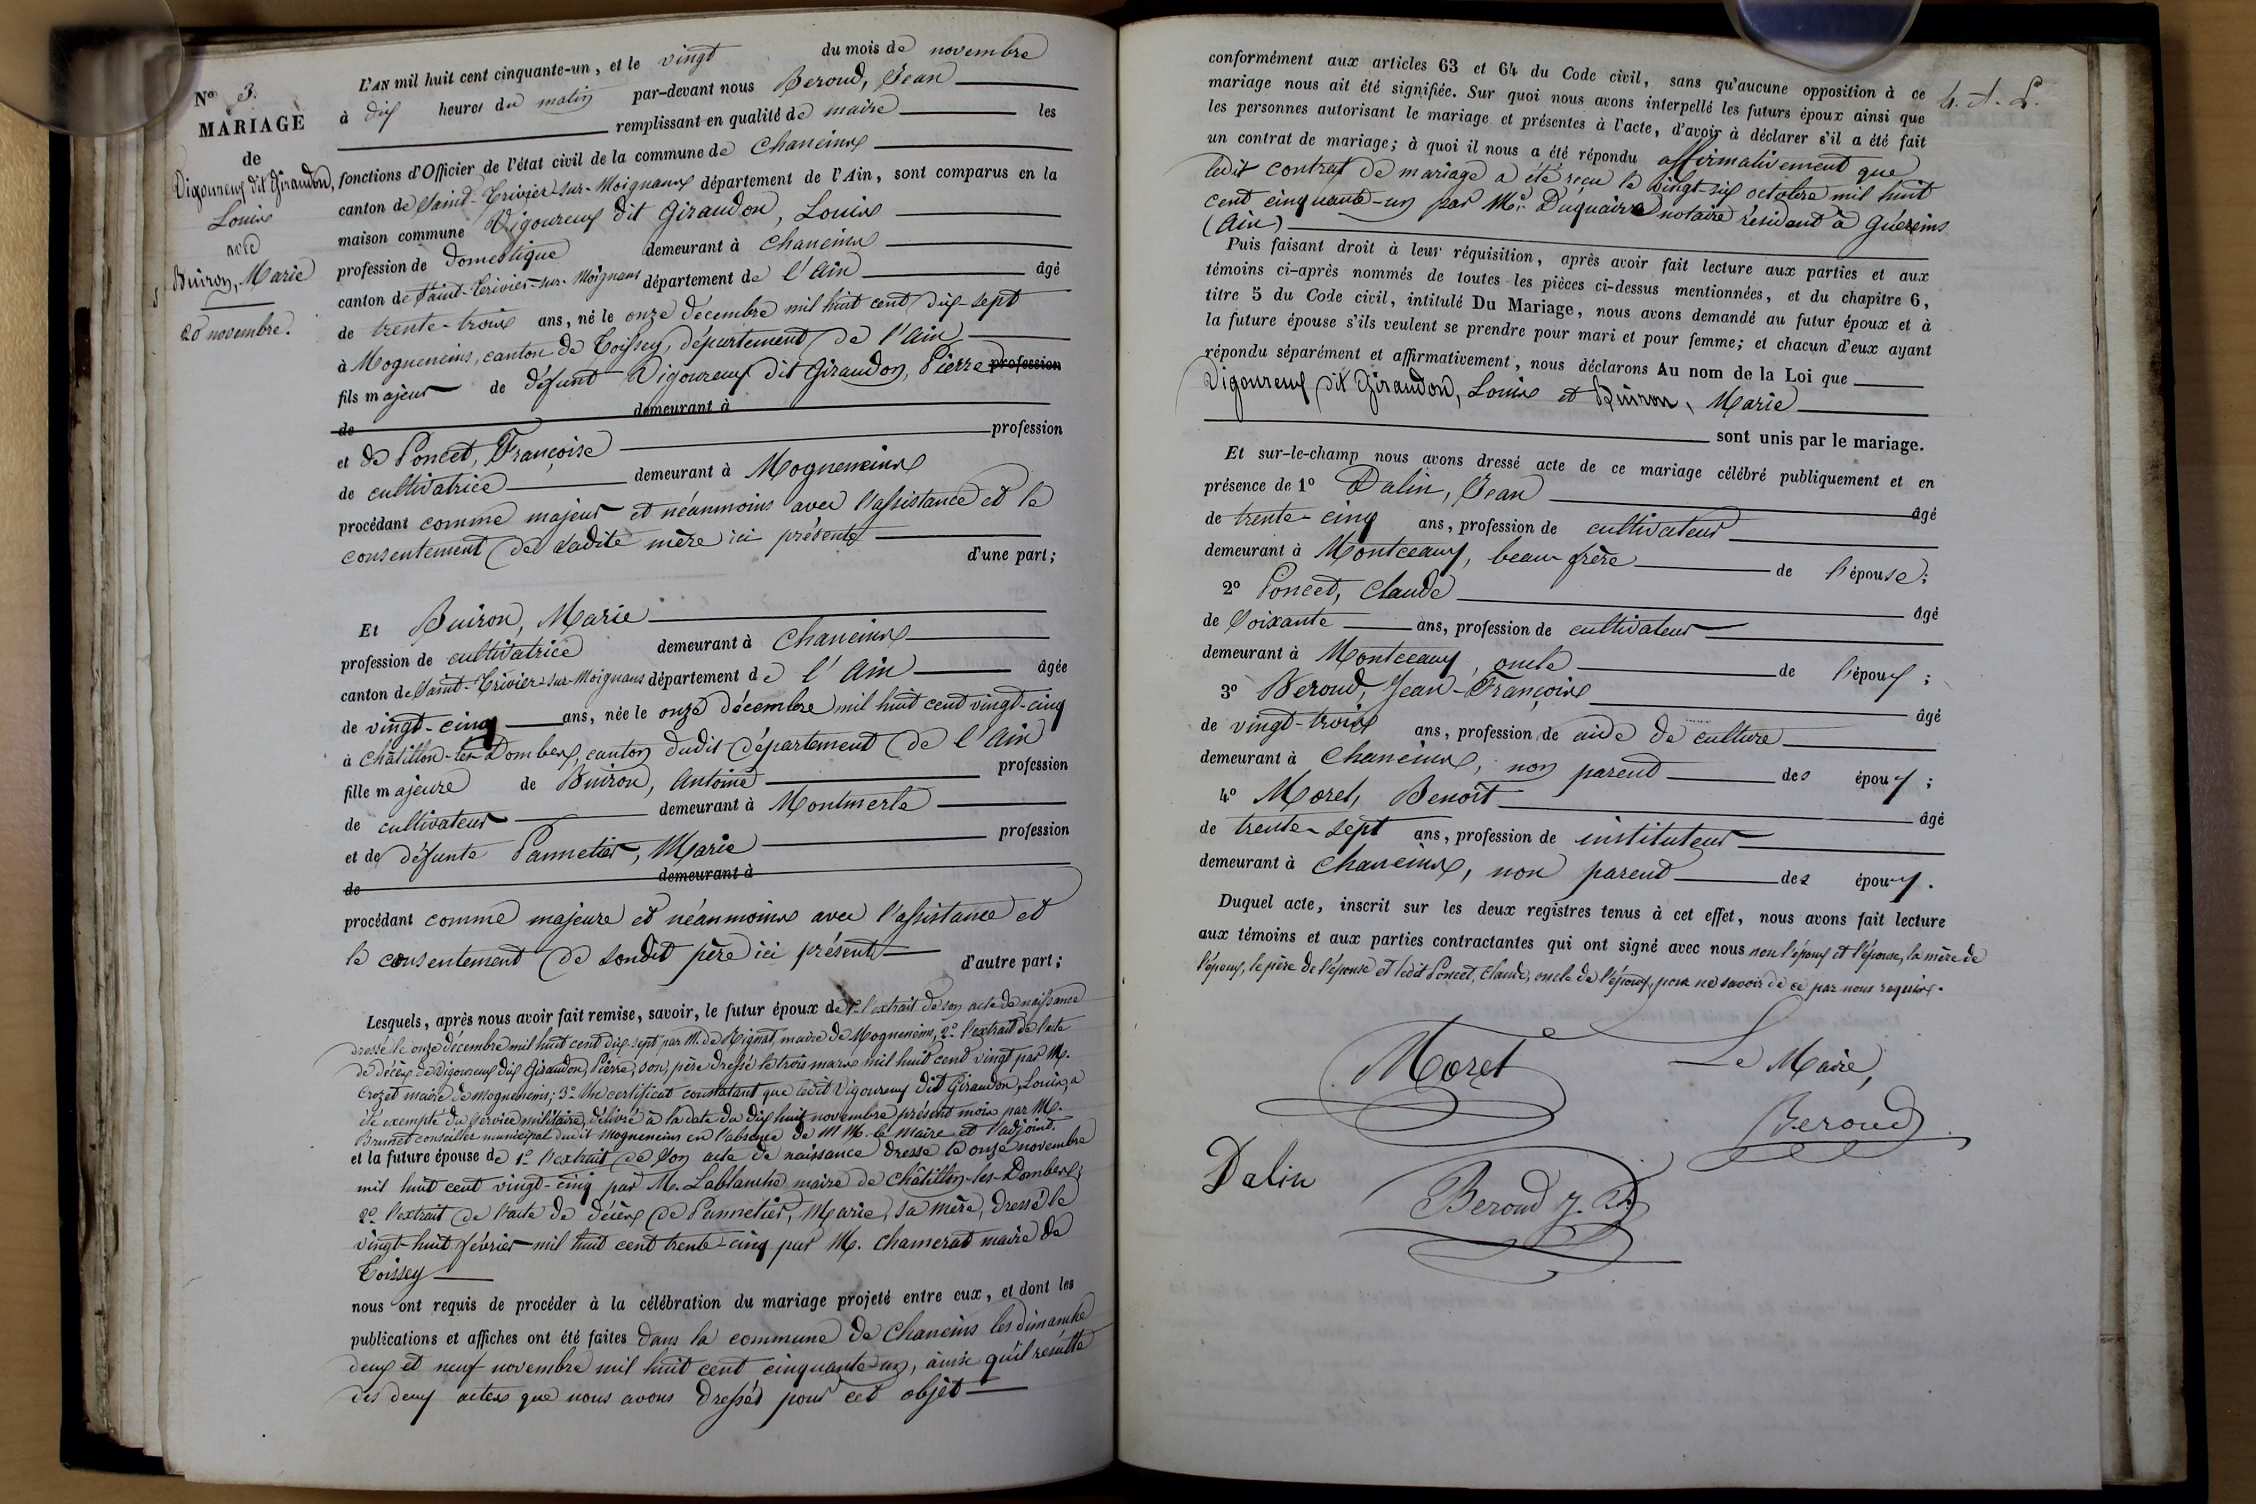 N° 3.
MARIAGE
de
Vigoureux dit Giraudon,
Louis
avec
Buiron, Marie
20 novembre.
L'AN mil huit cent cinquante-un, et le vingt du mois de novembre
à dix heures du matin par-devant nous Beroud, Jean
remplissant en qualité de maire les
fonctions d'Officier de l'état civil de la commune de Chaneins
canton de Saint-Trivier-sur-Moignans département de l'Ain, sont comparus en la
maison commune Vigoureux dit Giraudon, Louis
profession de domestique demeurant à Chaneins
canton de Saint-Trivier-sur-Moignans département de l'Ain âgé
de trente-trois ans, né le onze décembre mil huit cent dix-sept
à Mogneneins, canton de Toissey, département de l'Ain
fils majeur de défunt Vigoureux dit Giraudon, Pierre profession
de demeurant à
et de Poncet, Françoise profession
de cultivatrice demeurant à Mogneneins
procédant comme majeur et néanmoins avec l'assistance et le
consentement de sadite mère ici présente d'une part;
Et Buiron, Marie
profession de cultivatrice demeurant à Chaneins
canton de Saint-Trivier-sur-Moignans département de l'Ain âgée
de vingt-cinq ans, née le onze décembre mil huit cent vingt-cinq
à Châtillon-les-Dombes, canton dudit département de l'Ain
fille majeure de Buiron, Antoine profession
de cultivateur demeurant à Montmerle
et de défunte Pannetier, Marie profession
de demeurant à
procédant comme majeure et néanmoins avec l'assistance et
le consentement de sondit père ici présent d'autre part;
Lesquels, après nous avoir fait remise, savoir, le futur époux de 1° l'extrait de son acte de naissance
dressé le onze décembre mil huit cent dix-sept par M. de maire de Mogneneins, 2° l'extrait de l'acte
de décès de Vigoureux dit Giraudon, Pierre, son père dressé le trois mars mil huit cent vingt par M.
Crozet maire de Mogneneins; 3° Un certificat constatant que ledit Vigoureux dit Giraudon, Louis, a
été exempté du service militaire, délivré à la date du dix huit novembre présent mois par M.
Brunet conseiller municipal dudit Mogneneins en l'absence de MM. le maire et l'adjoint.
et la future épouse de 1° l'extrait de son acte de naissance dressé le onze novembre
mil huit cent vingt-cinq par M. Lablanche maire de Châtillon-les-Dombes;
2° l'extrait de l'acte de décès de Pannetier, Marie, sa mère, dressé le
vingt-huit février mil huit cent trente-cinq par M. Chamerat maire de
Toissey
nous ont requis de procéder à la célébration du mariage projeté entre eux, et dont les
publications et affiches ont été faites dans la commune de Chaneins les dimanche
deux et neuf novembre mil huit cent cinquante-un, ainsi qu'il résulte
des deux actes que nous avons dressés pour cet objet
conformément aux articles 63 et 64 du Code civil, sans qu'aucune opposition à ce
mariage nous ait été signifiée. Sur quoi nous avons interpellé les futurs époux ainsi que
les personnes autorisant le mariage et présentes à l'acte, d'avoir à déclarer s'il a été fait
un contrat de mariage; à quoi il nous a été répondu affirmativement que
ledit contrat de mariage a été reçu le vingt-six octobre mil huit
cent cinquante-un par Me Duquaire notaire résidant à Guéreins
(Ain)
Puis faisant droit à leur réquisition, après avoir fait lecture aux parties et aux
témoins ci-après nommés de toutes les pièces ci-dessus mentionnées, et du chapitre 6,
titre 5 du Code civil, intitulé Du Mariage, nous avons demandé au futur époux et à
la future épouse s'ils veulent se prendre pour mari et pour femme; et chacun d'eux ayant
répondu séparément et affirmativement, nous déclarons Au nom de la Loi que
Vigoureux dit Giraudon, Louis et Buiron, Marie
sont unis par le mariage.
Et sur-le-champ nous avons dressé acte de ce mariage célébré publiquement et en
présence de 1° Dalin, Jean âgé
de trente-cinq ans, profession de cultivateur
demeurant à Montceaux, beau-frère de l'épouse;
2° Poncet, Claude âgé
de soixante ans, profession de cultivateur
demeurant à Montceaux, oncle de l'époux;
3° Beroud, Jean-François âgé
de vingt-trois ans, profession de aide de culture
demeurant à Chaneins, non parent des époux;
4° Moret, Benoît âgé
de trente-sept ans, profession de instituteur
demeurant à Chaneins, non parent des époux.
Duquel acte, inscrit sur les deux registres tenus à cet effet, nous avons fait lecture
aux témoins et aux parties contractantes qui ont signé avec nous non l'époux et l'épouse, la mère de
l'époux, le père de l'épouse et ledit Poncet, Claude, oncle de l'époux, pour ne savoir de ce par nous requis.
Moret
Le Maire,
Beroud
Dalin
Beroud J. F.